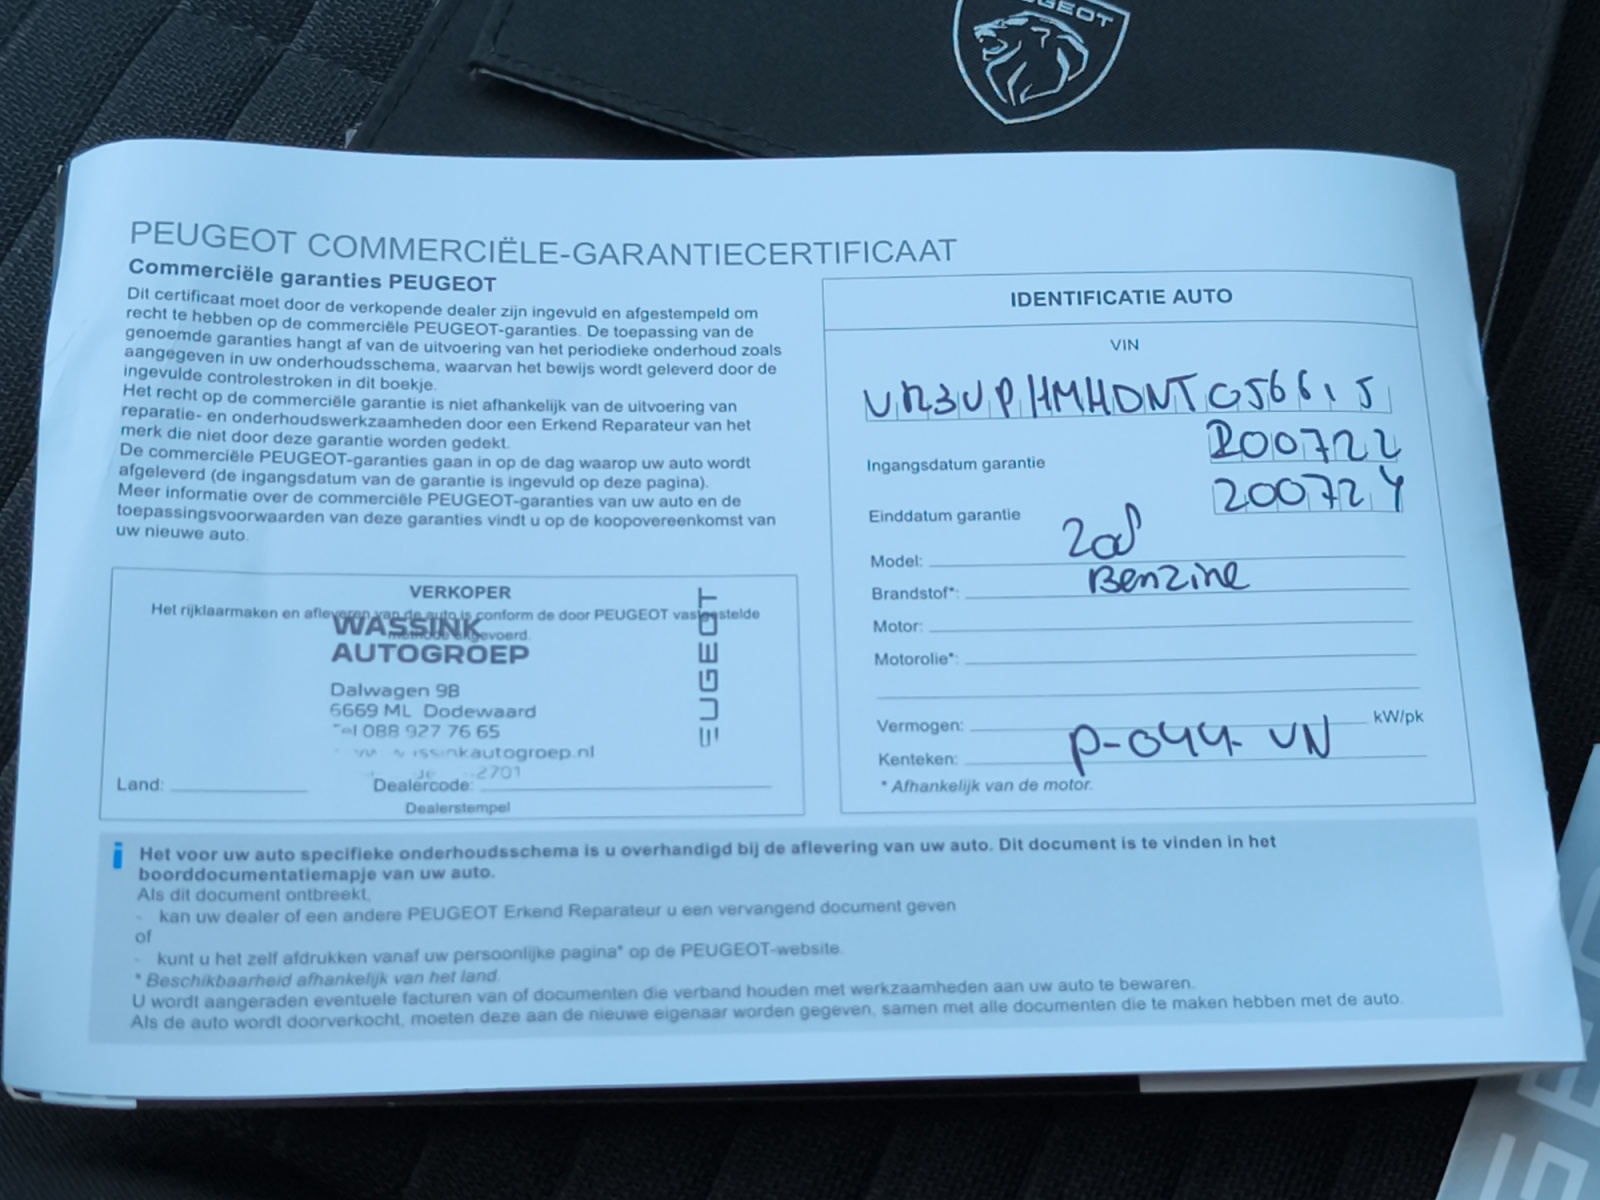 GEOT
PEUGEOT COMMERCIËLE-GARANTIECERTIFICAAT
Commerciële garanties PEUGEOT
Dit certificaat moet door de verkopende dealer zijn ingevuld en afgestempeld om
recht te hebben op de commerciële PEUGEOT-garanties. De toepassing van de
genoemde garanties hangt af van de uitvoering van het periodieke onderhoud zoals
aangegeven in uw onderhoudsschema, waarvan het bewijs wordt geleverd door de
ingevulde controlestroken in dit boekje.
Het recht op de commerciële garantie is niet afhankelijk van de uitvoering van
reparatie- en onderhoudswerkzaamheden door een Erkend Reparateur van het
merk die niet door deze garantie worden gedekt.
De commerciële PEUGEOT-garanties gaan in op de dag waarop uw auto wordt
afgeleverd (de ingangsdatum van de garantie is ingevuld op deze pagina).
Meer informatie over de commerciële PEUGEOT-garanties van uw auto en de
toepassingsvoorwaarden van deze garanties vindt u op de koopovereenkomst van
uw nieuwe auto.
VERKOPER
Het rijklaarmaken en afleveren van de auto is conform de door PEUGEOT vastgestelde
methode uitgevoerd.
WASSINK
AUTOGROEP
Dalwagen 98
6669 ML Dodewaard
Tel 088 927 76 65
2701
EUGEOT
Land:
Dealercode:
Dealerstempel
IDENTIFICATIE AUTO
VIN
VR3UPHMHDNT056615
Ingangsdatum garantie 200722
Einddatum garantie 200724
Model: 208
Brandstof*: Benzine
Motor:
Motorolie*:
Vermogen: kW/pk
Kenteken: P-044-VN
* Afhankelijk van de motor.
i Het voor uw auto specifieke onderhoudsschema is u overhandigd bij de aflevering van uw auto. Dit document is te vinden in het
boorddocumentatiemapje van uw auto.
Als dit document ontbreekt,
- kan uw dealer of een andere PEUGEOT Erkend Reparateur u een vervangend document geven
of
- kunt u het zelf afdrukken vanaf uw persoonlijke pagina* op de PEUGEOT-website.
* Beschikbaarheid afhankelijk van het land.
U wordt aangeraden eventuele facturen van of documenten die verband houden met werkzaamheden aan uw auto te bewaren.
Als de auto wordt doorverkocht, moeten deze aan de nieuwe eigenaar worden gegeven, samen met alle documenten die te maken hebben met de auto.